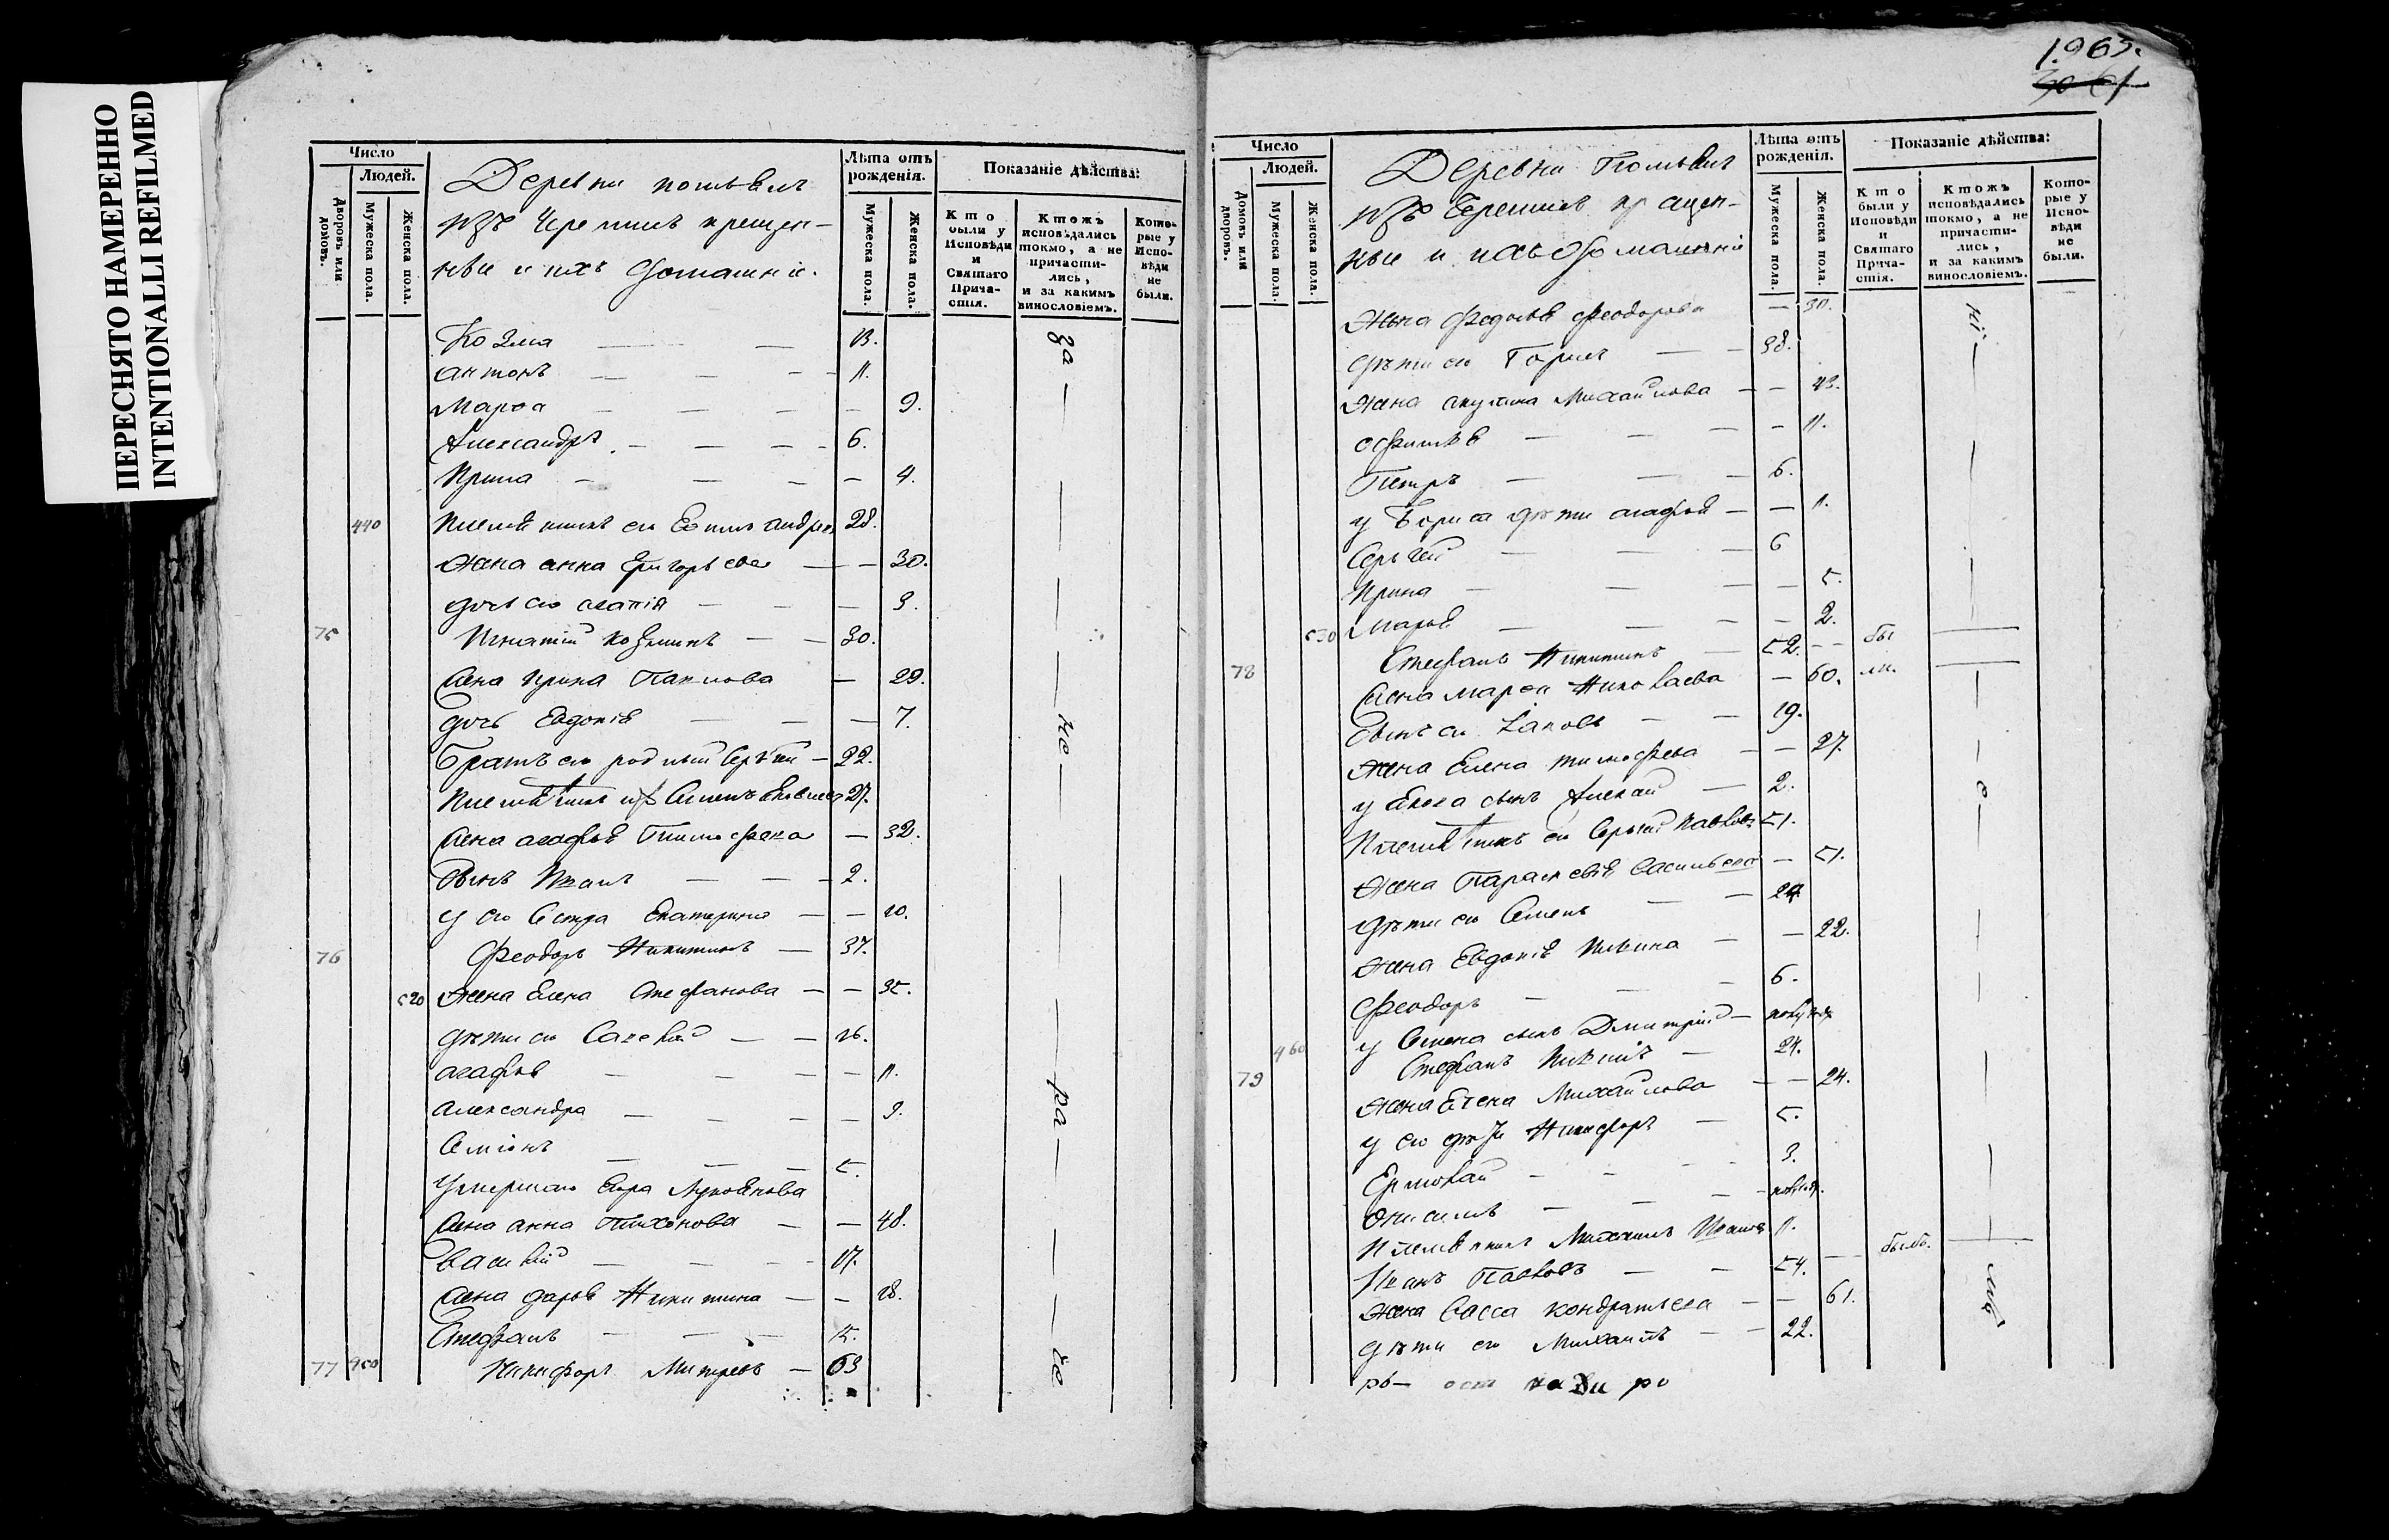 ПЕРЕСНЯТО НАМЕРЕННО
INTENTIONALLI REFILMED
Число
Людей.
Дворовъ или домовъ.
Мужеска пола.
Женска пола.
Деревни
изъ Черемисъ крещен-
ныи и ихъ домашніи.
Лѣта отъ рожденія.
Мужеска пола.
Женска пола.
Показаніе дѣйства:
Кто были у Исповѣди и Святаго Прича-стія.
Ктожъ исповѣдались токмо, а не причасти-лись, и за какимъ винословіемъ.
Кото-рые у Испо-вѣди не были.
Козма — — 13.
за
Антонъ — — — 11.
Марѳа — — — — 9.
Александръ — — — 6.
Ирина — — — — 4.
440 Племянникъ ево 28.
Жена Анна Григорьева — — 30.
дочь ево Агапія — — — 3.
75 Игнатій Козминъ — — 30.
Жена Ирина Павлова — 29.
дочь Евдокія — — — 7.
не
Братъ ево родный Сергѣй — 22.
Племянникъ ихъ Семенъ 27.
Жена Агафья Тимофеева — 32.
Сынъ Иванъ — — — 2.
у ево Сестра Екатерина — — 20.
76 Феодоръ Никитинъ — 37.
520 Жена Елена Стефанова — — 35.
дѣти ево Савелий — — 16.
Агафья — — — — 11.
ра
Александра — — — — 9.
Симіонъ — — — 5.
Умершаго
Жена Анна Тихонова — — 48.
Василий — — — 17.
Жена Дарья Никитина — — 18.
Стефанъ — — — 15.
77 450 Никифоръ Митревъ — 63
1963.
Число
Людей.
Домовъ или дворовъ.
Мужеска пола.
Женска пола.
Деревни
изъ Черемисъ крещен-
ныи и ихъ домашніи
Лѣта отъ рожденія.
Мужеска пола.
Женска пола.
Показаніе дѣйства:
Кто были у Исповѣди и Святаго Прича-стія.
Ктожъ исповѣдались токмо, а не причасти-лись, и за какимъ винословіемъ.
Кото-рые у Испо-вѣди не были.
Жена Федосья Феодорова — 30.
ні
дѣти ево — — 38.
Жена Акулина Михайлова — — 43.
Офимья — — — — 11.
Петръ — — — 6.
у Бориса дѣти Агафья — — 11.
Сергей — — — 6
Ирина — — — — 5.
530 Марья — — — — 2.
78 Стефанъ Никитинъ — 52. — — бы
Жена Марѳа Николаева — 60. ли.
Сынъ ево Іаковъ — — 19.
Жена Елена Тимофеева — — 27.
у Якова сынъ Алексай — 2.
е
Племянникъ ево Сергей Павловъ 51.
Жена Параскевія Васильева — 51.
дѣти ево Семенъ — — 24
Жена Евдокія Ильина — — 22.
Феодоръ — — — 6.
460 у Семена сынъ Дмитрій —
79 Стефанъ — 24.
Жена Елена Михайлова — — 24.
у ево дѣти Никифоръ — 5.
Ермолай — — — 3.
Онисимъ — — —
Племянникъ Михаилъ Ивановъ 11.
Иванъ Павловъ — — 54. — былъ.
Жена Васса Кондратьева — — 61.
дѣти ево Михаилъ — — 22.